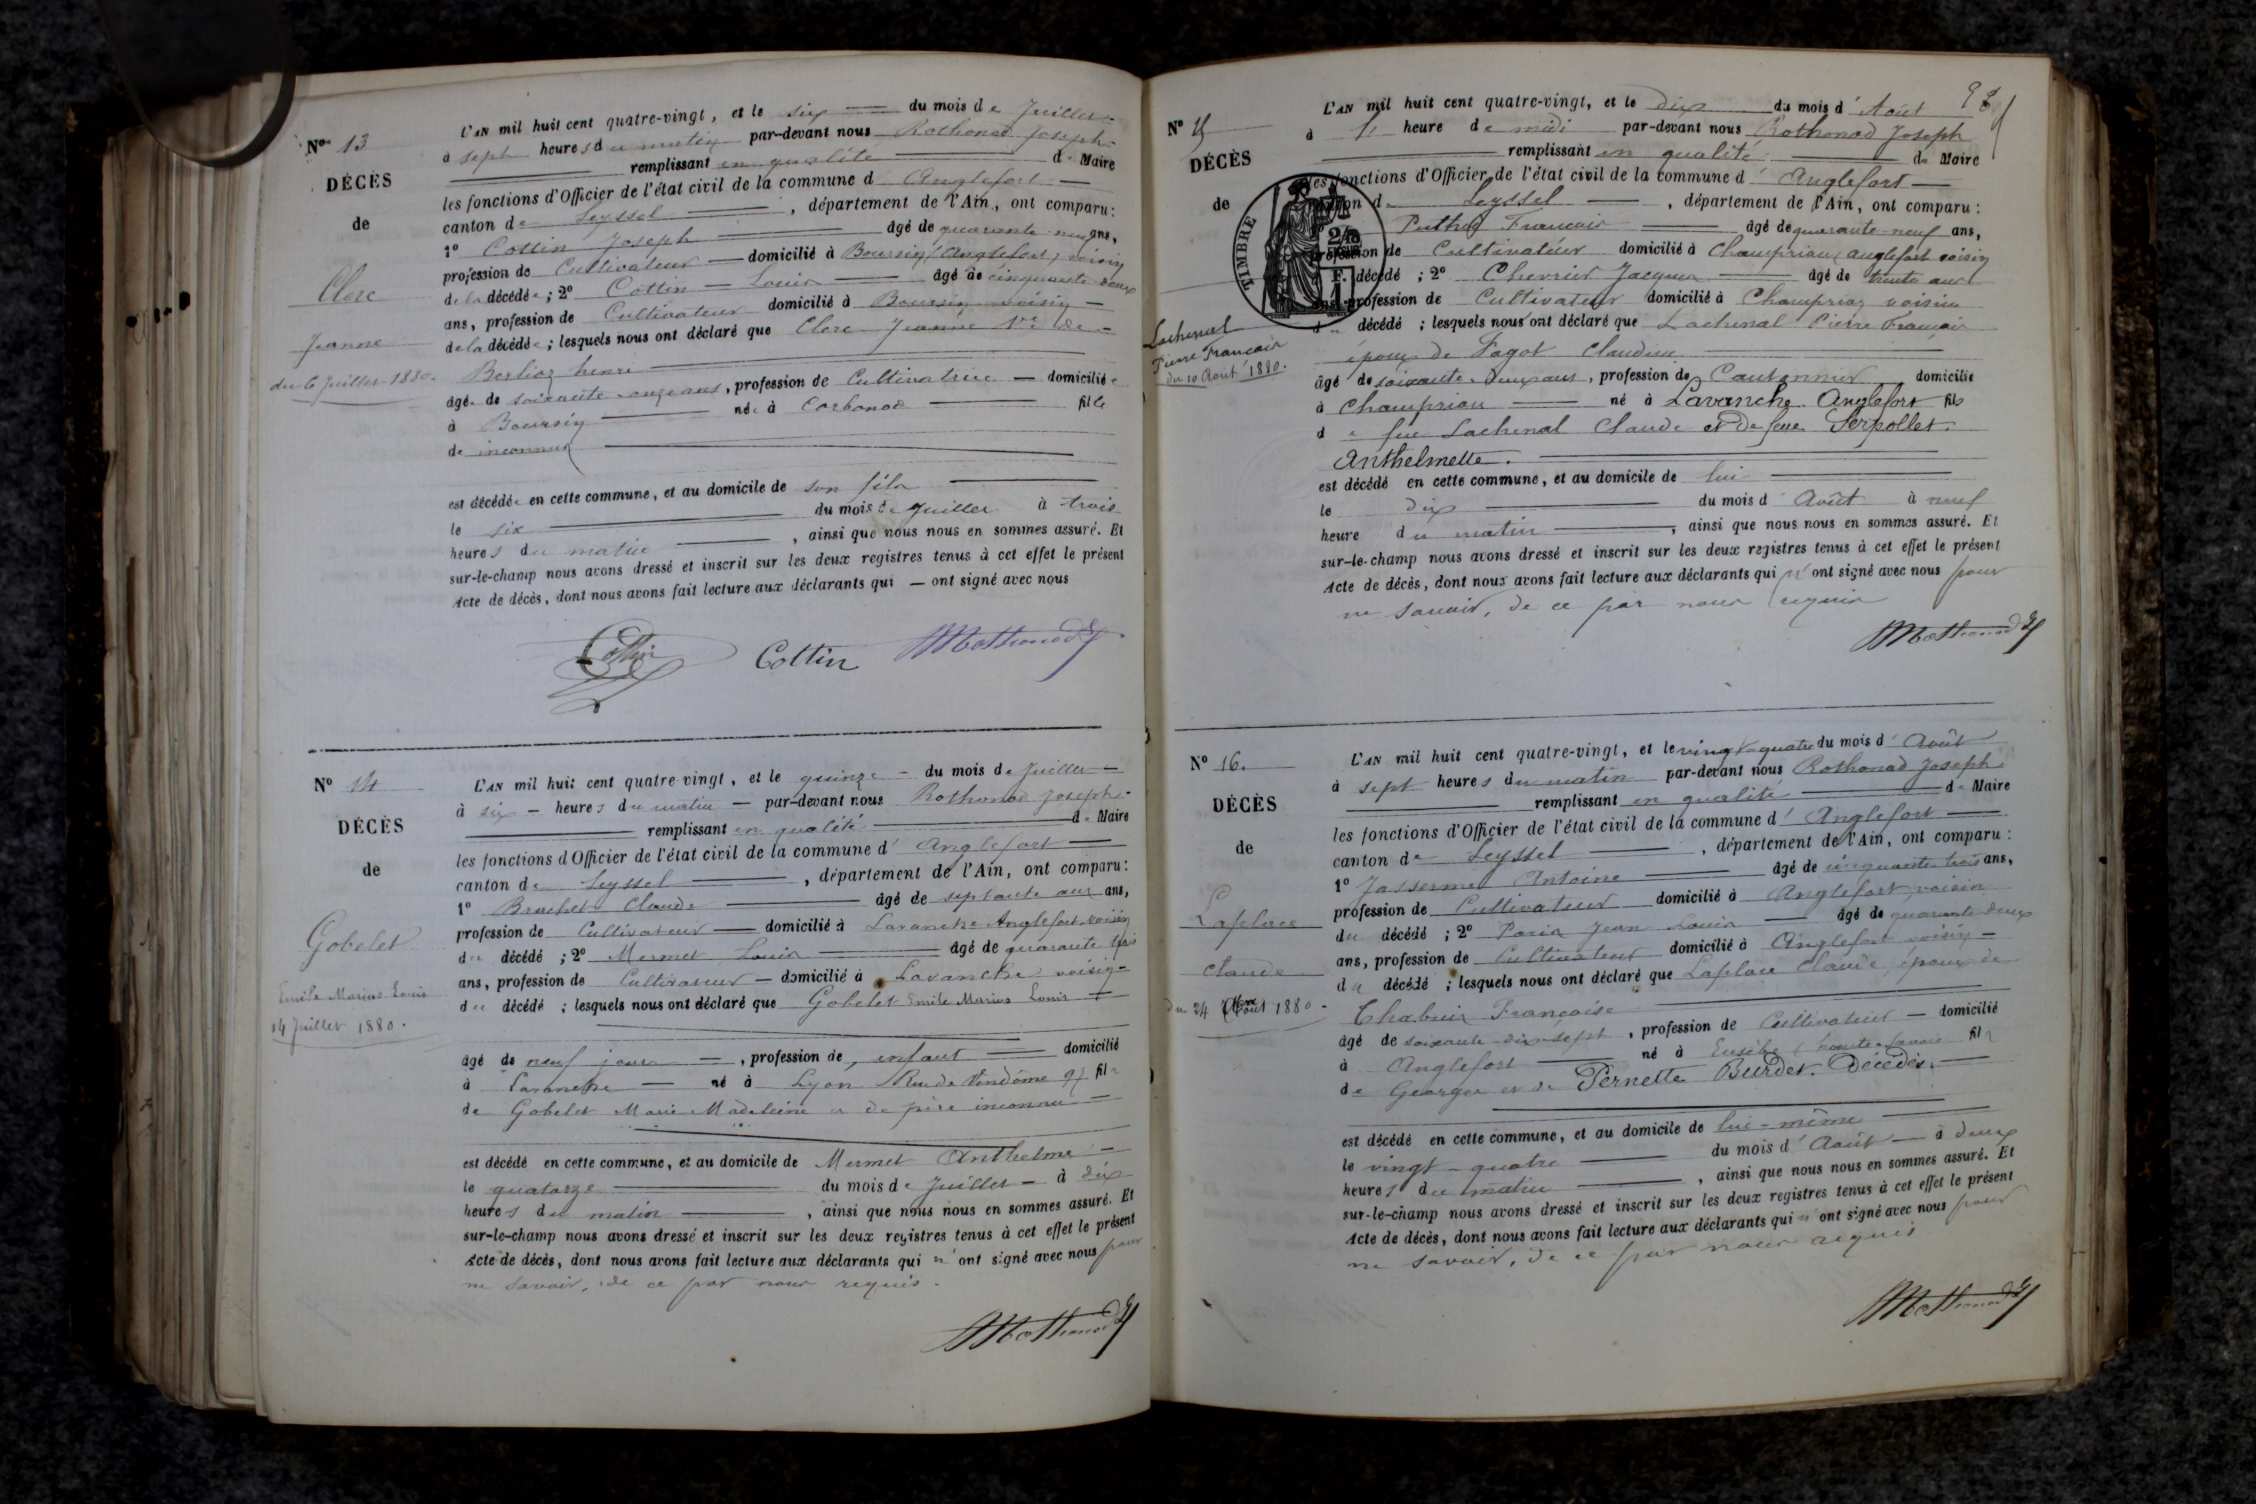 No 13
DÉCÈS
de
Clerc
Jeanne
du 6 Juillet 1880.
L'AN mil huit cent quatre-vingt, et le six du mois de Juillet
à sept heures du matin par-devant nous Rothonod Joseph
remplissant en qualité de Maire
les fonctions d'Officier de l'état civil de la commune d Anglefort
canton de Seyssel, département de l'Ain, ont comparu:
1o Cottin Joseph âgé de quarante-neuf ans,
profession de Cultivateur domicilié à Boursin (Anglefort) voisin
de la décédée; 2o Cottin Louis âgé de cinquante deux
ans, profession de Cultivateur domicilié à Boursin voisin
de la décédée; lesquels nous ont déclaré que Clerc Jeanne Ve de
Berlioz henri
âgée de soixante-onze ans, profession de Cultivatrice domiciliée
à Boursin née à Corbonod fille
de inconnus
est décédée en cette commune, et au domicile de son fils
le six du mois de Juillet à trois
heures du matin, ainsi que nous nous en sommes assuré. Et
sur-le-champ nous avons dressé et inscrit sur les deux registres tenus à cet effet le présent
Acte de décès, dont nous avons fait lecture aux déclarants qui — ont signé avec nous
Cottin Cottin Rothonod
No 14
DÉCÈS
de
Gobelet
Emile Marius Louis
14 Juillet 1880.
L'AN mil huit cent quatre-vingt, et le quinze du mois de Juillet
à six heures du matin par-devant nous Rothonod Joseph
remplissant en qualité de Maire
les fonctions d'Officier de l'état civil de la commune d'Anglefort
canton de Seyssel, département de l'Ain, ont comparu:
1o Bruchet Claude âgé de septante ans,
profession de Cultivateur domicilié à Lavanche Anglefort voisin
du décédé; 2o Mermet Louis âgé de quarante trois
ans, profession de Cultivateur domicilié à Lavanche voisin
du décédé; lesquels nous ont déclaré que Gobelet Emile Marius Louis
âgé de neuf jours, profession de, enfant domicilié
à Lavanche né à Lyon Rue de Vendôme 97 fils
de Gobelet Marie Madeleine et de père inconnu
est décédé en cette commune, et au domicile de Mermet Anthelme
le quatorze du mois de Juillet à dix
heures du matin, ainsi que nous nous en sommes assuré. Et
sur-le-champ nous avons dressé et inscrit sur les deux registres tenus à cet effet le présent
Acte de décès, dont nous avons fait lecture aux déclarants qui n'ont signé avec nous pour
ne savoir, de ce par nous requis.
Rothonod
No 15
DÉCÈS
de
Lachenal
Pierre Francois
du 10 Août 1880.
TIMBRE
L'AN mil huit cent quatre-vingt, et le dix du mois d'Août
à 1 heure de midi par-devant nous Rothonod Joseph
remplissant en qualité de Maire
les fonctions d'Officier de l'état civil de la commune d'Anglefort
canton de Seyssel, département de l'Ain, ont comparu:
Puthod Francois âgé de quarante-neuf ans,
profession de Cultivateur domicilié à Champriaz anglefort voisin
décédé; 2o Chevrier Jacques âgé de trente
ans, profession de Cultivateur domicilié à Champriaz voisin
du décédé; lesquels nous ont déclaré que Lachenal Pierre Francois
époux de Fagot Claudine
âgé de soixante-deux ans, profession de Cantonnier domicilié
à Champriaz né à Lavanche Anglefort fils
de feu Lachenal Claude et de feue Serpollet
Anthelmette.
est décédé en cette commune, et au domicile de lui
le dix du mois d'Août à neuf
heure du matin, ainsi que nous nous en sommes assuré. Et
sur-le-champ nous avons dressé et inscrit sur les deux registres tenus à cet effet le présent
Acte de décès, dont nous avons fait lecture aux déclarants qui n'ont signé avec nous pour
ne savoir, de ce par nous requis
Rothonod
No 16.
DÉCÈS
de
Laplace
Claude
du 24 Août 1880
L'AN mil huit cent quatre-vingt, et le vingt-quatre du mois d'Août
à sept heures du matin par-devant nous Rothonod Joseph
remplissant en qualité de Maire
les fonctions d'Officier de l'état civil de la commune d'Anglefort
canton de Seyssel, département de l'Ain, ont comparu:
1o Jasserme Antoine âgé de cinquante trois ans,
profession de Cultivateur domicilié à Anglefort, voisin
du décédé; 2o Paris Jean Louis âgé de quarante-deux
ans, profession de Cultivateur domicilié à Anglefort voisin
du décédé; lesquels nous ont déclaré que Laplace Claude, époux de
Chabuis Françoise
âgé de soixante-dix-sept, profession de Cultivateur domicilié
à Anglefort né à Eusèbe (haute-Savoie fils
de George et de Pernette Burdet. Décédés.
est décédé en cette commune, et au domicile de lui-même
le vingt-quatre du mois d'Août à deux
heures du matin, ainsi que nous nous en sommes assuré. Et
sur-le-champ nous avons dressé et inscrit sur les deux registres tenus à cet effet le présent
Acte de décès, dont nous avons fait lecture aux déclarants qui n'ont signé avec nous pour
ne savoir, de ce par nous requis
Rothonod